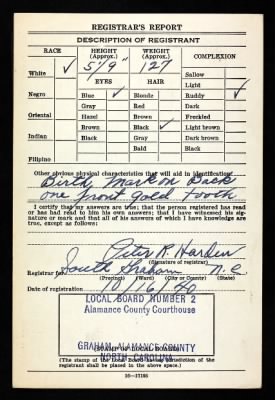 REGISTRAR'S REPORT
DESCRIPTION OF REGISTRANT
RACE HEIGHT (Approx.) WEIGHT (Approx.) COMPLEXION
White ✓ 5' 9" 127 Sallow
EYES HAIR Light ✓
Negro Blue ✓ Blonde Ruddy ✓
Gray Red Dark
Oriental Hazel Brown Freckled
Brown Black ✓ Light brown
Indian Black Gray Dark brown
Bald Black
Filipino
Other obvious physical characteristics that will aid in identification
Birth Mark on Back
one front Gold Tooth
I certify that my answers are true; that the person registered has read
or has had read to him his own answers; that I have witnessed his
signature or mark and that all of his answers of which I have knowledge are
true, except as follows:
Peter R Harden
(Signature of registrar)
Registrar for South Graham N. C
(Precinct) (Ward) (City or County) (State)
Date of registration 10/16/40
LOCAL BOARD NUMBER 2
Alamance County Courthouse
GRAHAM, ALAMANCE COUNTY
(STAMP OF LOCAL BOARD)
NORTH CAROLINA
(The stamp of the Local Board having jurisdiction of the
registrant shall be placed in the above space.)